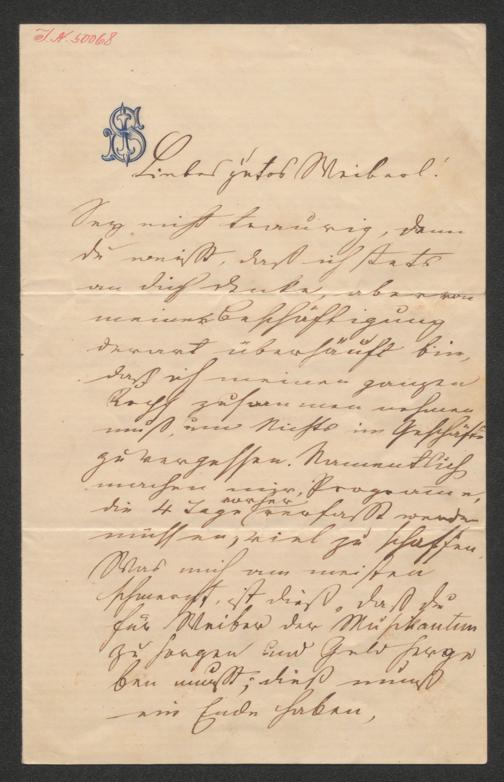 I.N. 50068
JS
Liebes gutes Weiberl!
Sey nicht traurig, denn
du weißt, daß ich stets
an dich denke, aber von
meiner Beschäftigung
derart überhäuft bin,
daß ich meinen ganzen
Kopf zusammen nehmen
muß, um Nichts im Geschäfte
zu vergessen. Namentlich
machen mir, Programme,
die 4 Tage vorher verfaßt werden
müssen, viel zu schaffen.
Was mich am meisten
schmerzt, ist dieß, daß du
für Weiber der Musikanten
zu sorgen und Geld herge
ben mußt; dieß muß
ein Ende haben,